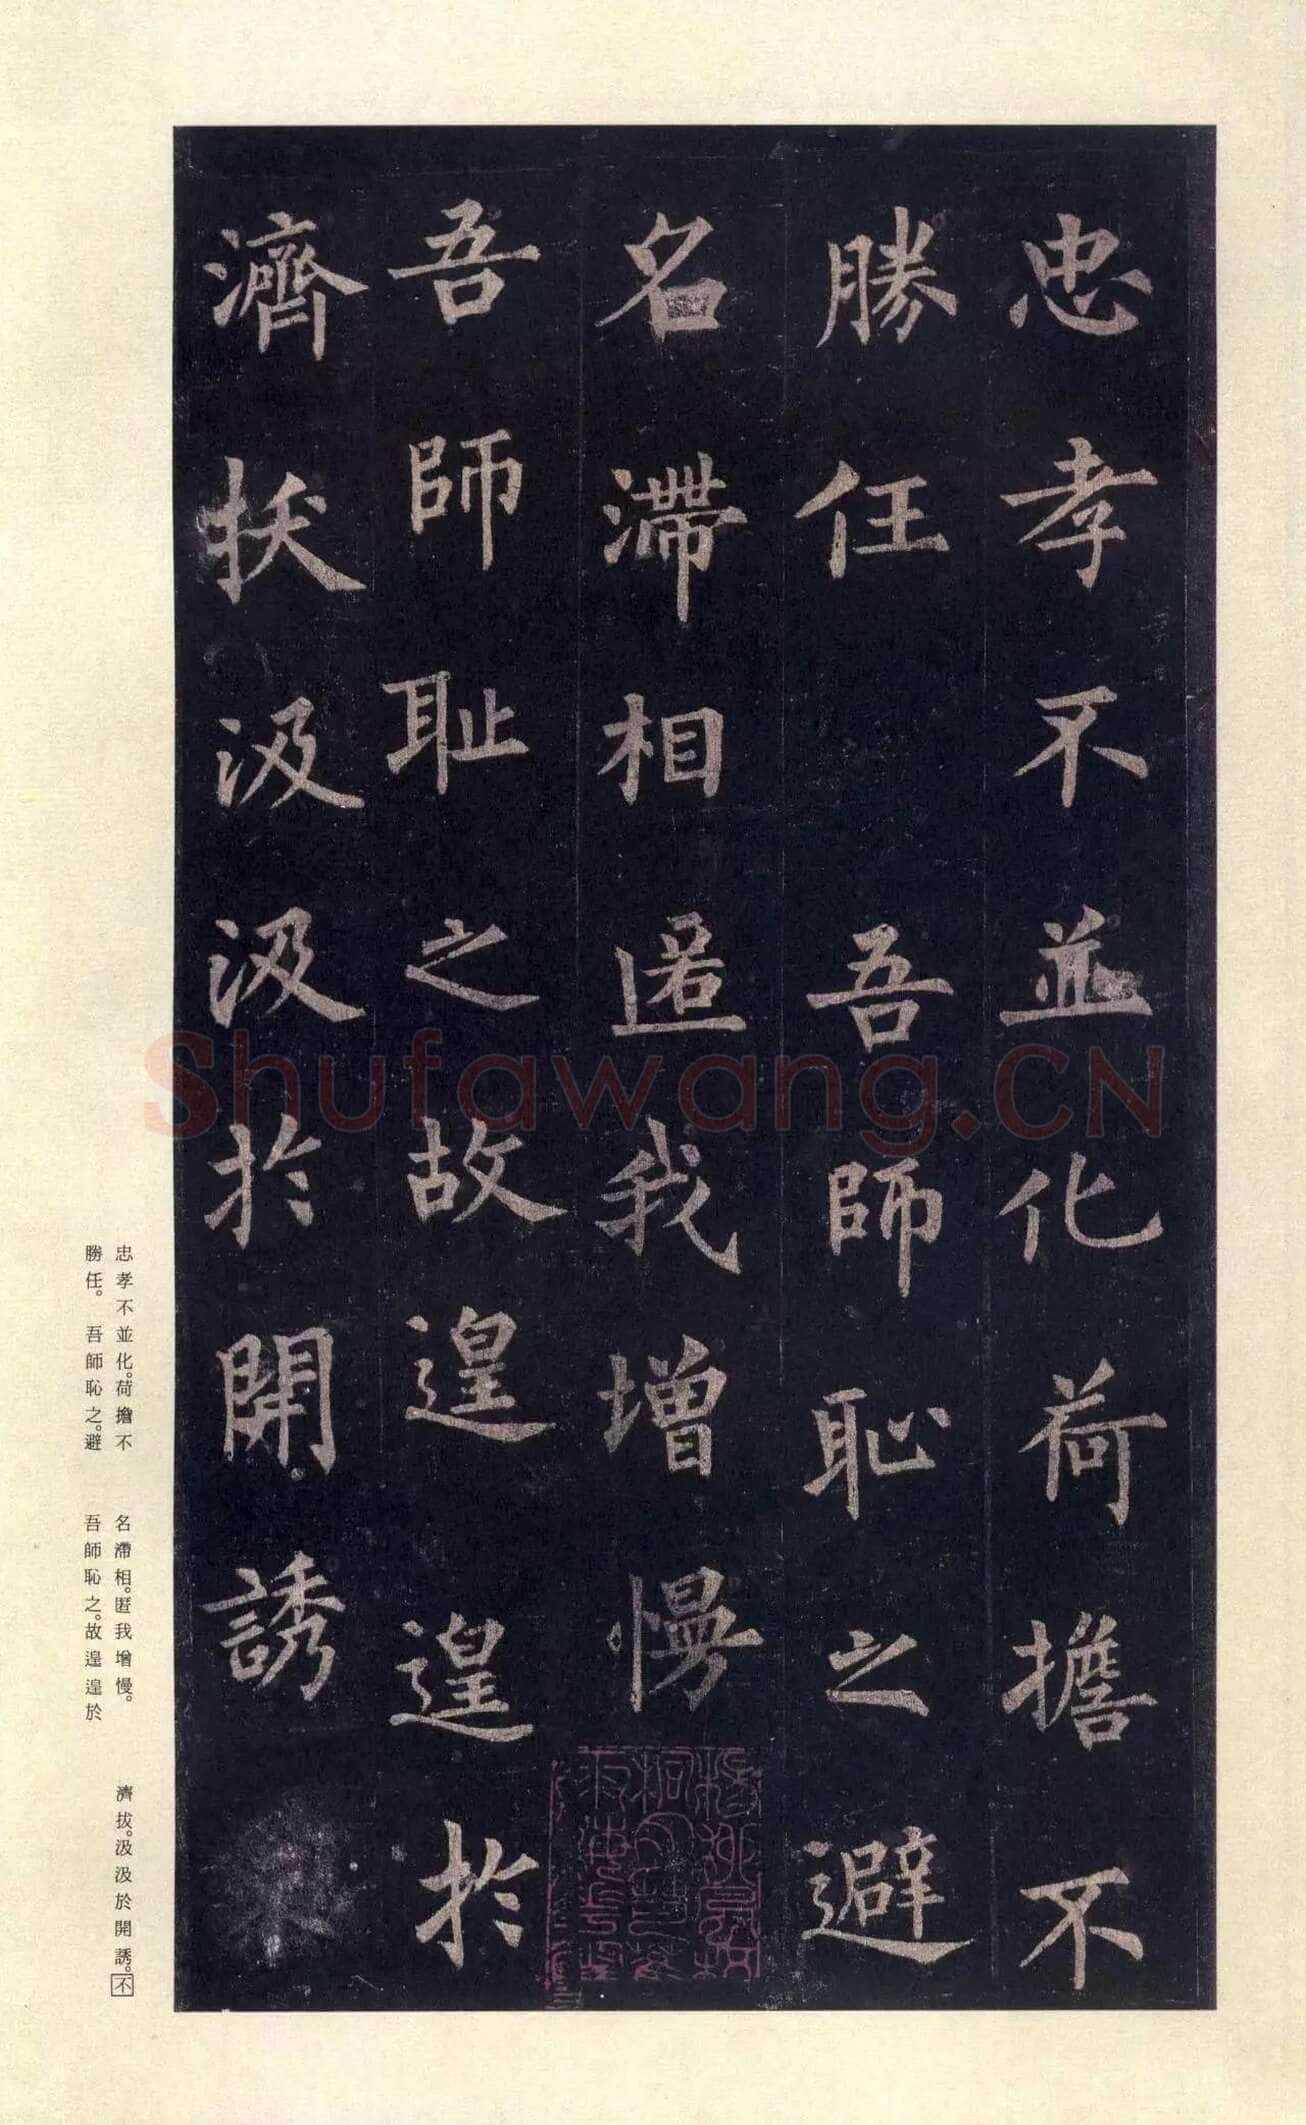 忠孝不並化荷擔不
勝任吾師恥之避
名滯相匿我增慢
吾師耻之故遑遑於
濟拔汲汲於開誘
忠孝不並化。荷擔不
勝任。吾師恥之。避
名滯相。匿我增慢。
吾師恥之。故遑遑於
濟拔。汲汲於開誘。不
Shufawang.CN